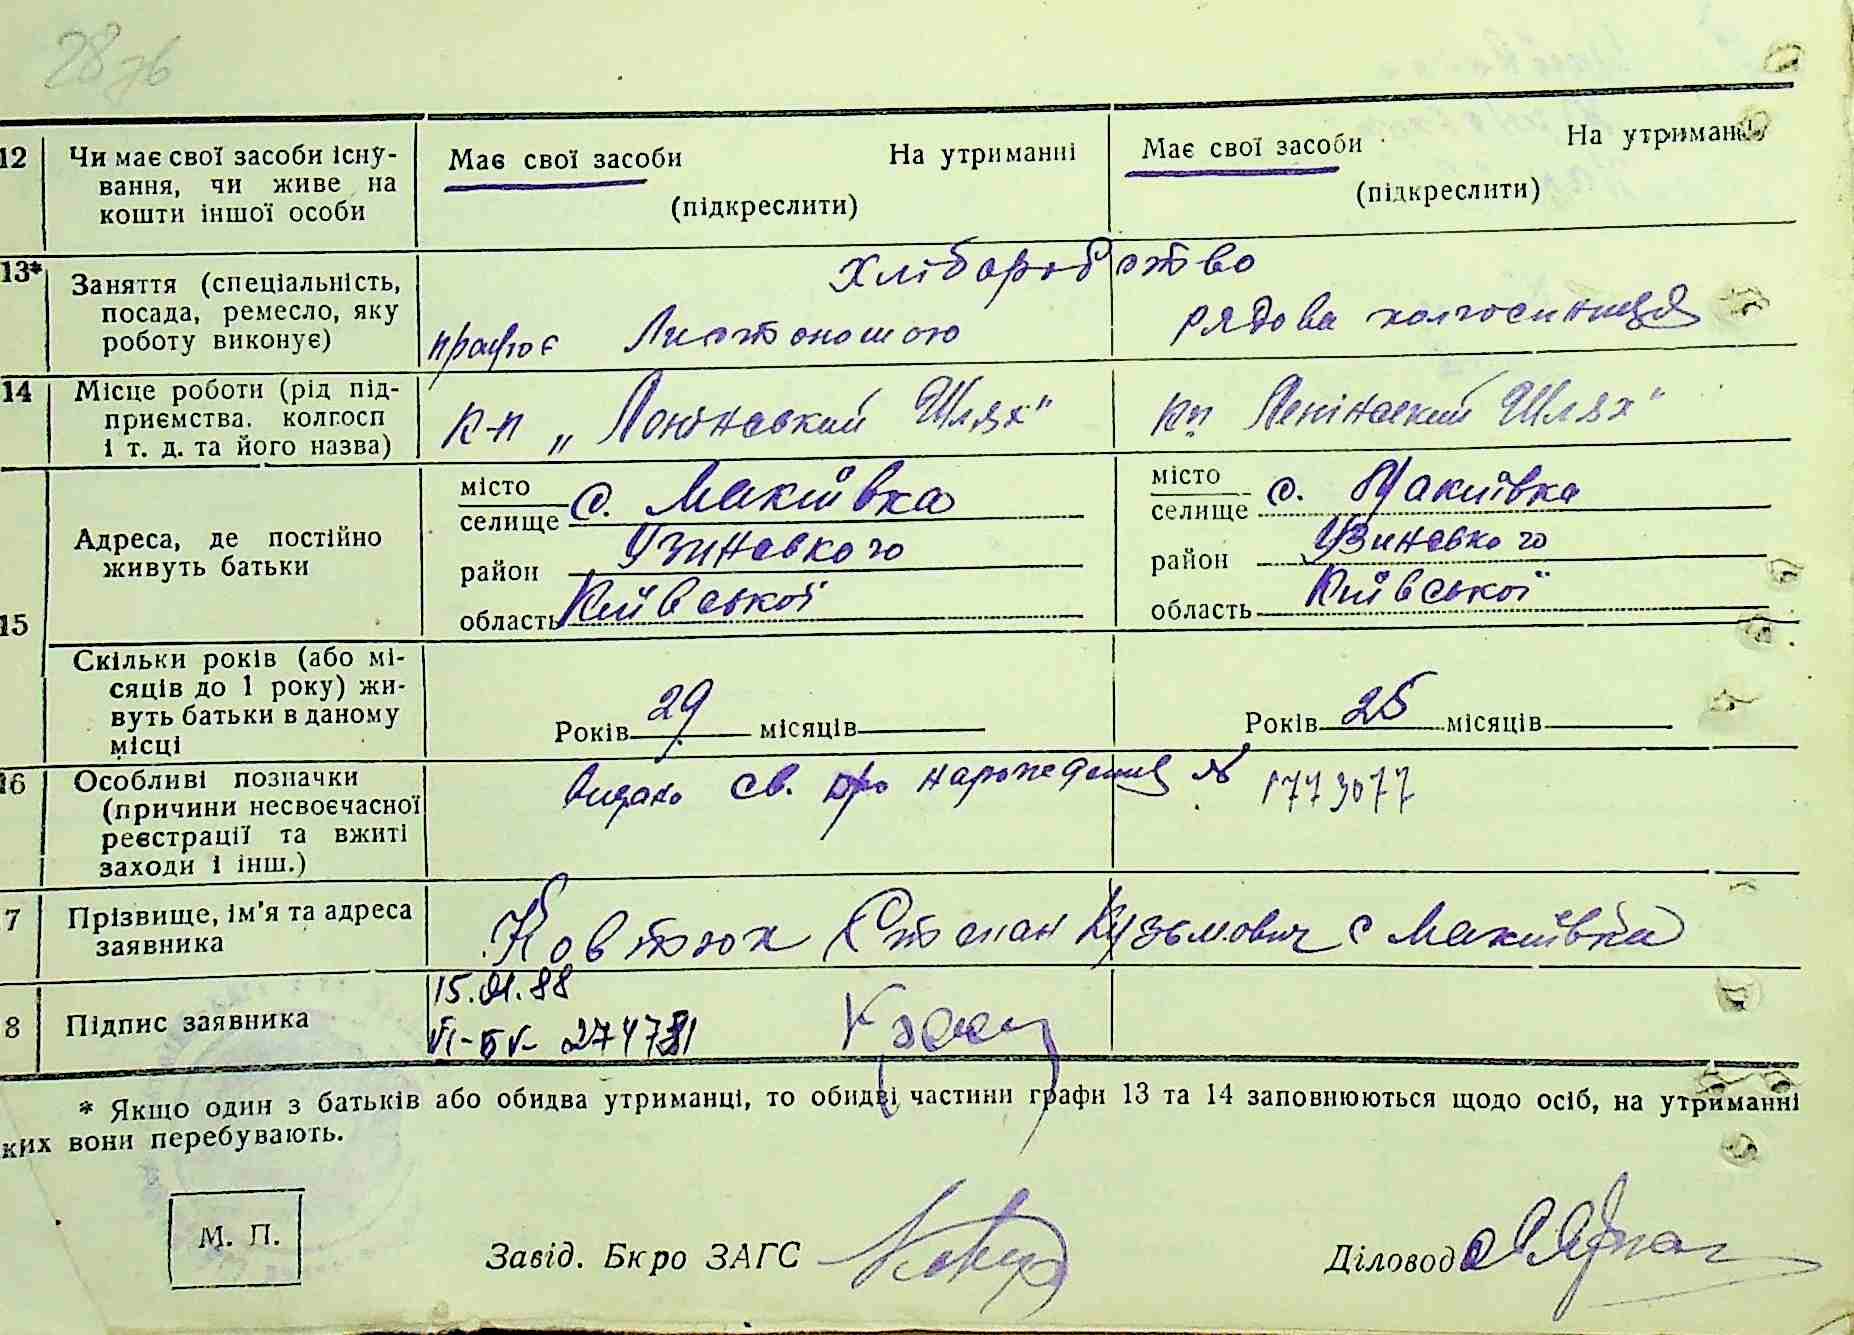 28зв
12 Чи має свої засоби існу-
вання, чи живе на
кошти іншої особи
Має свої засоби На утриманні
(підкреслити)
Має свої засоби На утриманні
(підкреслити)
13* Заняття (спеціальність,
посада, ремесло, яку
роботу виконує)
хліборобство
працює Листоношою
рядова колгоспниця
14 Місце роботи (рід під-
приємства, колгосп
і т. д. та його назва)
к-п „Ленінський Шлях"
кп Ленінський Шлях"
15 Адреса, де постійно
живуть батьки
місто
селище с. Макиївка
район Узинського
область Київської
місто
селище с. Макиївка
район Узинського
область Київської
Скільки років (або мі-
сяців до 1 року) жи-
вуть батьки в даному
місці
Років 29 місяців
Років 25 місяців
16 Особливі позначки
(причини несвоєчасної
реєстрації та вжиті
заходи і інш.)
Видано св. про народження № 1773077
7 Прізвище, ім'я та адреса
заявника
Ковтюх Степан Кузьмович с Макиївка
8 Підпис заявника
15.01.88
* Якщо один з батьків або обидва утриманці, то обидві частини графи 13 та 14 заповнюються щодо осіб, на утриманні
ких вони перебувають.
М. П.
Завід. Бюро ЗАГС
Діловод